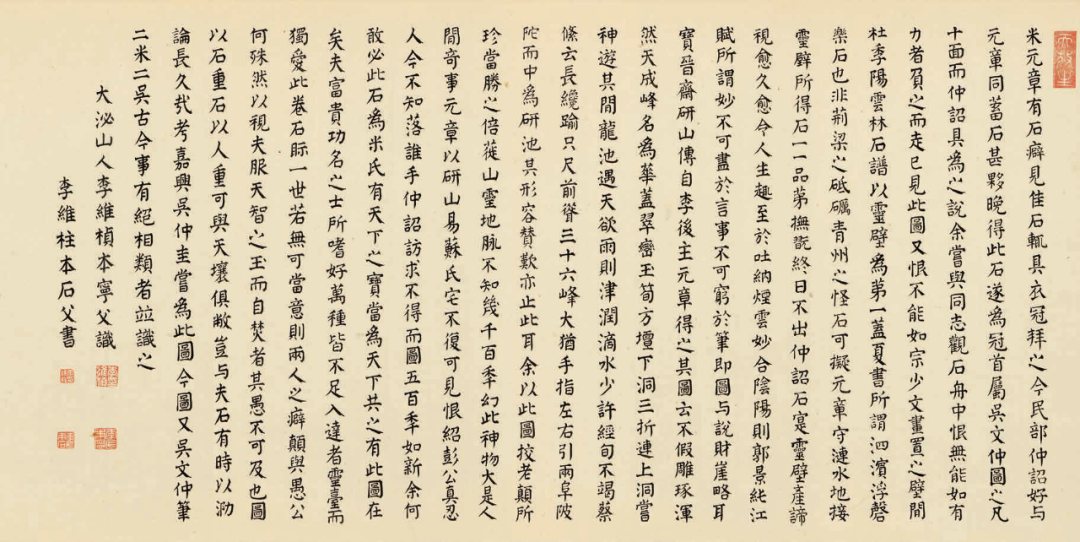 米元章有石癖見佳石輒具衣冠拜之今民部仲詔好与
元章同蓄石甚夥晚得此石遂為冠首屬吳文仲圖之凡
十面而仲詔具為之說余嘗與同志觀石舟中恨無能如有
力者負之而走已見此圖又恨不能如宗少文畫置之壁間
杜季陽雲林石譜以靈壁為第一蓋夏書所謂泗濱浮磬
樂石也非荊梁之砥礪青州之怪石可擬元章守漣水地接
靈壁所得石一一品第撫翫終日不出仲詔石寔靈壁產諦
視愈久愈令人生趣至於吐納煙雲妙合陰陽則郭景純江
賦所謂妙不可盡於言事不可窮於筆即圖与說財崖略耳
寶晉齋研山傳自李後主元章得之其圖云不假雕琢渾
然天成峰名為華蓋翠巒玉筍方壇下洞三折連上洞嘗
神遊其間龍池遇天欲雨則津潤滴水少許經旬不竭蔡
絛云長纔踰只尺前聳三十六峰大猶手指左右引兩阜陂
陀而中為研池其形容贊歎亦止此耳余以此圖挍老顛所
珍當勝之倍蓰山靈地脉不知幾千百秊幻此神物大是人
間奇事元章以研山易蘇氏宅不復可見恨紹彭公真忍
人今不知落誰手仲詔訪求不得而圖五百秊如新余何
敢必此石為米氏有天下之寶當為天下共之有此圖在
矣夫富貴功名之士所嗜好萬種皆不足入達者靈臺而
獨愛此卷石眎一世若無可當意則兩人之癖顛與愚公
何殊然以視夫服天智之玉而自焚者其愚不可及也圖
以石重石以人重可與天壤俱敝豈与夫石有時以泐
論長久哉考嘉興吳仲圭嘗為此圖今圖又吳文仲筆
二米二吳古今事有絕相類者並識之
大泌山人李維楨本寧父識
李維柱本石父書